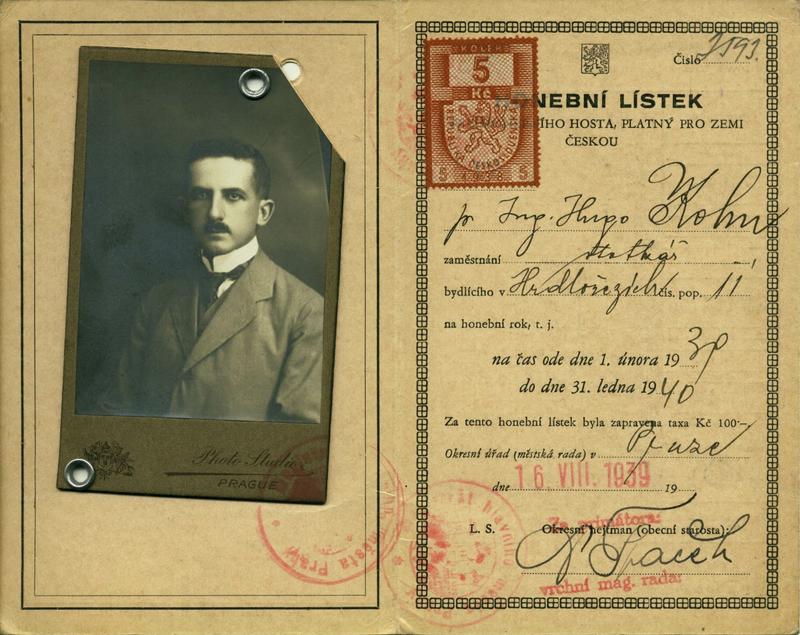 Photo Studio
PRAGUE
KOLEK
5
KČ
5 1938 5
Číslo 2593.
NEBNÍ LÍSTEK
ÍHO HOSTA, PLATNÝ PRO ZEMI
ČESKOU
Ing. Hugo Kohn
zaměstnání
bydlícího v Hrdlořezích čís. pop. 11
na honební rok, t. j.
na čas ode dne 1. února 1939
do dne 31. ledna 1940
Za tento honební lístek byla zapravena taxa Kč 100·–
Okresní úřad (městská rada) v Praze
dne 16. VIII. 1939 19
Za primátora:
L. S. Okresní hejtman (obecní starosta):
vrchní mag. rada:
města Prahy
hlavního